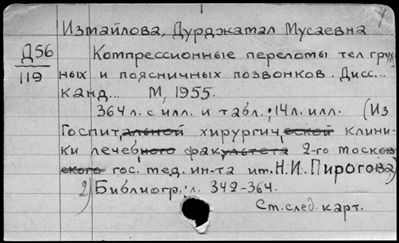 Измайлова, Дурджатал Мусаевна
Д56
119
Компрессионные переломы тел груд-
ных и поясничных позвонков. Дисс...
канд... М, 1955.
364 л. с илл. и табл.; 14 л. илл. (Из
Госпитальной хирургической клини-
ки лечебного факультета 2-го Москов
ского гос. мед. ин-та им. Н.И. Пирогова)
2) Библиогр.: л. 342-364.
См. след. карт.